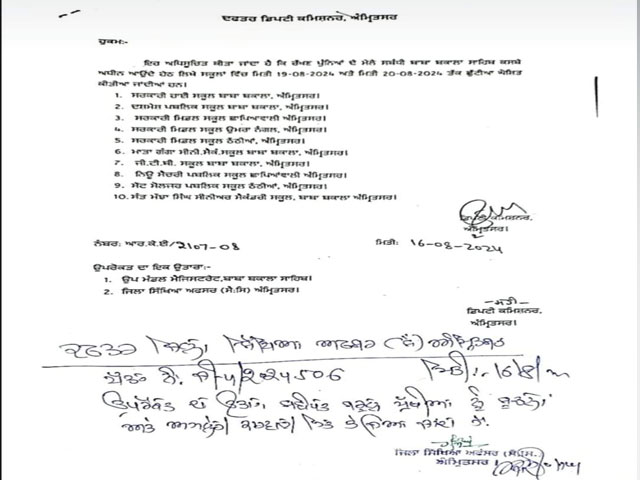 ਦਫਤਰ ਡਿਪਟੀ ਕਮਿਸ਼ਨਰ, ਅੰਮ੍ਰਿਤਸਰ
ਹੁਕਮ:-
ਇਹ ਅਧਿਸੂਚਿਤ ਕੀਤਾ ਜਾਂਦਾ ਹੈ ਕਿ ਰੱਖਣ ਪੁੰਨਿਆ ਦੇ ਮੇਲੇ ਸਬੰਧੀ ਬਾਬਾ ਬਕਾਲਾ ਸਾਹਿਬ ਕਸਬੇ
ਅਧੀਨ ਆਉਂਦੇ ਹੇਠ ਲਿਖੇ ਸਕੂਲਾਂ ਵਿੱਚ ਮਿਤੀ 19-08-2024 ਅਤੇ ਮਿਤੀ 20-08-2024 ਤੱਕ ਛੁੱਟੀਆਂ ਘੋਸ਼ਿਤ
ਕੀਤੀਆਂ ਜਾਂਦੀਆਂ ਹਨ।
1. ਸਰਕਾਰੀ ਹਾਈ ਸਕੂਲ ਬਾਬਾ ਬਕਾਲਾ, ਅੰਮ੍ਰਿਤਸਰ।
2. ਦਸ਼ਮੇਸ਼ ਪਬਲਿਕ ਸਕੂਲ ਬਾਬਾ ਬਕਾਲਾ, ਅੰਮ੍ਰਿਤਸਰ।
3. ਸਰਕਾਰੀ ਮਿਡਲ ਸਕੂਲ ਛਾਪਿਆਂਵਾਲੀ ਅੰਮ੍ਰਿਤਸਰ।
4. ਸਰਕਾਰੀ ਮਿਡਲ ਸਕੂਲ ਉਮਰਾ ਨੰਗਲ, ਅੰਮ੍ਰਿਤਸਰ।
5. ਸਰਕਾਰੀ ਮਿਡਲ ਸਕੂਲ ਠੱਠੀਆਂ, ਅੰਮ੍ਰਿਤਸਰ।
6. ਮਾਤਾ ਗੰਗਾ ਸੀਨੀ.ਸੈਕੰ.ਸਕੂਲ ਬਾਬਾ ਬਕਾਲਾ, ਅੰਮ੍ਰਿਤਸਰ।
7. ਜੀ.ਟੀ.ਬੀ. ਸਕੂਲ ਬਾਬਾ ਬਕਾਲਾ, ਅੰਮ੍ਰਿਤਸਰ।
8. ਨਿਊ ਸੈਂਚਰੀ ਪਬਲਿਕ ਸਕੂਲ ਛਾਪਿਆਂਵਾਲੀ ਅੰਮ੍ਰਿਤਸਰ।
9. ਸੇਂਟ ਸੋਲਜਰ ਪਬਲਿਕ ਸਕੂਲ ਠੱਠੀਆਂ, ਅੰਮ੍ਰਿਤਸਰ।
10. ਸੰਤ ਮਾਝਾ ਸਿੰਘ ਸੀਨੀਅਰ ਸੈਕੰਡਰੀ ਸਕੂਲ, ਬਾਬਾ ਬਕਾਲਾ ਅੰਮ੍ਰਿਤਸਰ।
ਡਿਪਟੀ ਕਮਿਸ਼ਨਰ,
ਅੰਮ੍ਰਿਤਸਰ।
ਨੰਬਰ: ਆਰ.ਕੇ.ਈ/2107-08 ਮਿਤੀ: 16-08-2024
ਉਪਰੋਕਤ ਦਾ ਇਕ ਉਤਾਰਾ:-
1. ਉਪ ਮੰਡਲ ਮੈਜਿਸਟਰੇਟ,ਬਾਬਾ ਬਕਾਲਾ ਸਾਹਿਬ।
2. ਜਿਲਾ ਸਿੱਖਿਆ ਅਫਸਰ (ਸੈ:ਸਿ) ਅੰਮ੍ਰਿਤਸਰ।
-ਸਹੀ-
ਡਿਪਟੀ ਕਮਿਸ਼ਨਰ,
ਅੰਮ੍ਰਿਤਸਰ।
ਦਫਤਰ ਜਿਲ੍ਹਾ ਸਿੱਖਿਆ ਅਫਸਰ (ਸੈ) ਅੰਮ੍ਰਿਤਸਰ
ਮਿਤੀ:- 16/8/
ਉਪਰੋਕਤ ਦਾ ਉਤਾਰਾ ਸਬੰਧਤ ਸਕੂਲ ਮੁੱਖੀਆਂ ਨੂੰ ਸੂਚਨਾ
ਅਤੇ ਅਗਲੇਰੀ ਕਾਰਵਾਈ ਹਿੱਤ ਭੇਜਿਆ ਜਾਂਦਾ ਹੈ।
ਜਿਲਾ ਸਿੱਖਿਆ ਅਫਸਰ (ਸੈ.ਸਿ.)
ਅੰਮ੍ਰਿਤਸਰ।